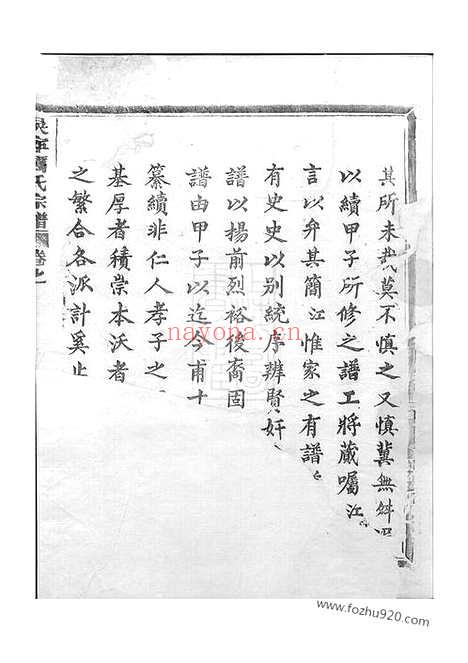 其所未哉莫不慎之又慎冀無舛
以續甲子所修之譜工將藏囑江
言以弁其簡江惟家之有譜
有史史以別統序辨賢奸
譜以揚前烈裕後裔固
譜由甲子以迄今甫十
纂續非仁人孝子之
基厚者積崇本沃者
之繁合各派計奚止
氏宗譜
nayona.cn
www.fozhu920.com